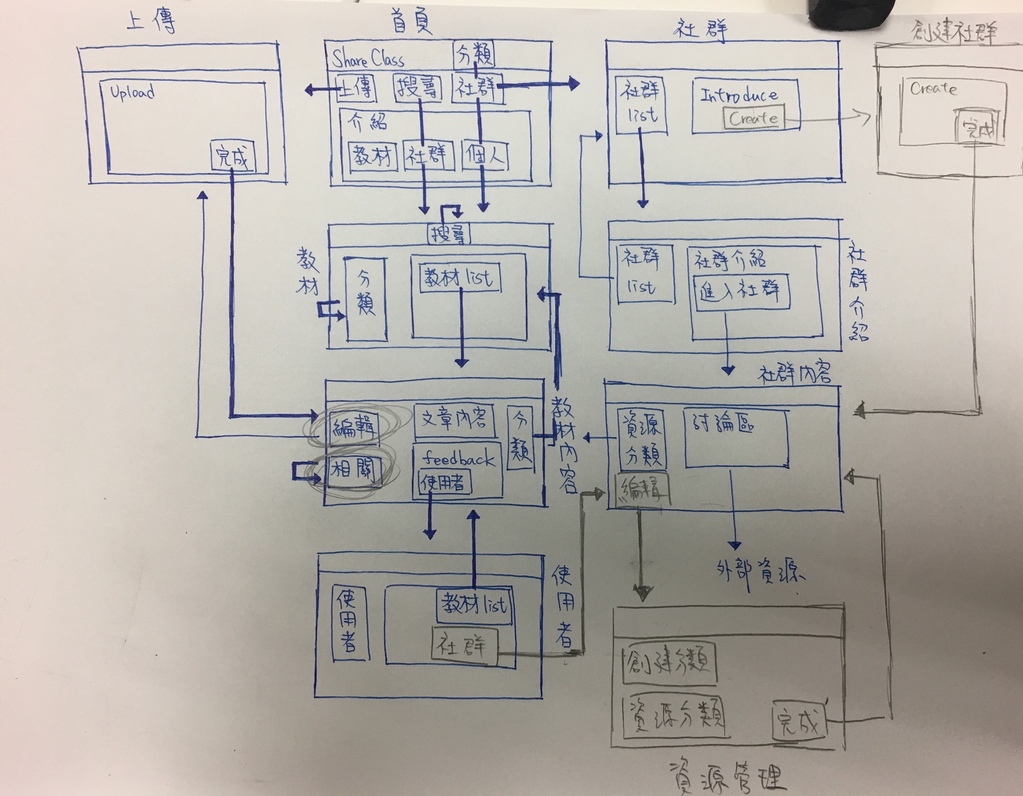 上傳
Upload
完成
首頁
Share Class
分類
上傳
搜尋
社群
介紹
教材
社群
個人
社群
社群
list
Introduce
Create
創建社群
Create
完成
教材
搜尋
分類
教材 list
社群
list
社群介紹
進入社群
社群介紹
教材內容
編輯
相關
文章內容
feedback
使用者
分類
社群內容
資源
分類
編輯
討論區
外部資源
使用者
使用者
教材 list
社群
創建分類
資源分類
完成
資源管理